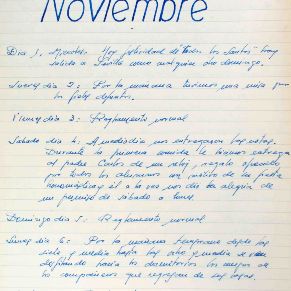 Noviembre
Dia 1, Miercoles: Hoy festividad de "todos los Santos" hay
salida a Sevilla como cualquier otro domingo.
Jueves dia 2: Por la mañana tuvimos una misa por
los fieles difuntos.
Viernes dia 3: Reglamento normal
Sabado dia 4: A mediodia nos entregaron las notas.
Durante la primera comida le hicimos entrega
al padre Carlos de un reloj, regalo ofrecido
por todos los alumnos con motivo de su fiesta
onomástica y él a la vez nos dió la alegria de
un permiso de sábado a lunes
Domingo dia 5: Reglamento normal
Lunes dia 6: Por la mañana temprano desde las
siete y media hasta las ocho y media se van
hacia los dormitorios los
los compañeros que regresan de sus casas.